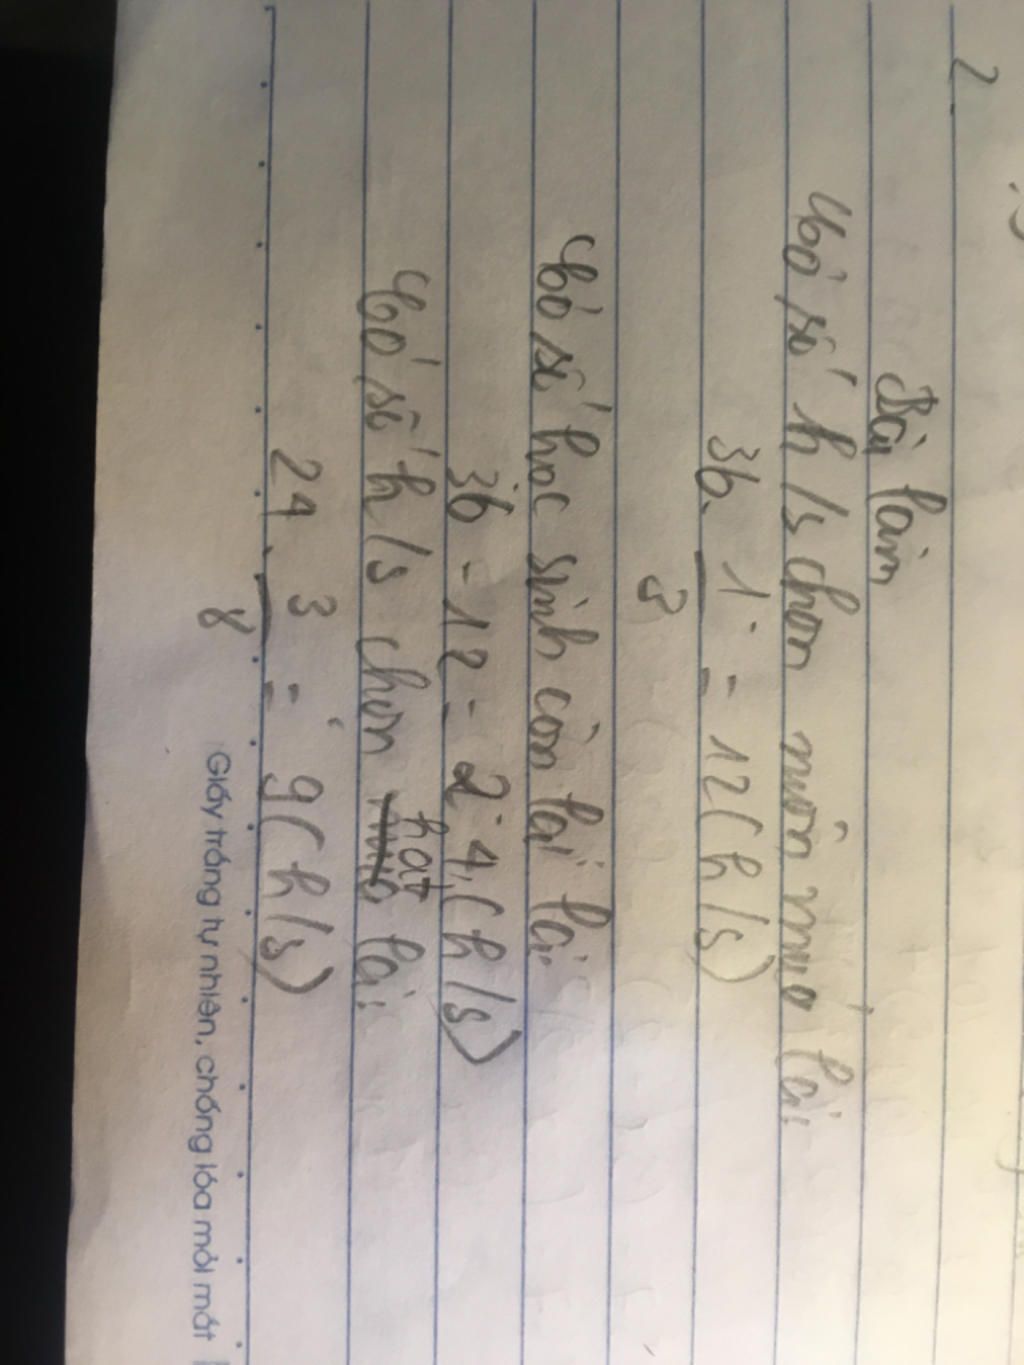 2
Bài làm
Có số h/s chọn môn múa là:
36. 1/3 = 12 (h/s)
Có số học sinh còn lại là:
36 - 12 = 24 (h/s)
Có số h/s chọn hát là:
24. 3/8 = 9 (h/s)
Giấy trắng tự nhiên, chống lóa mỏi mắt